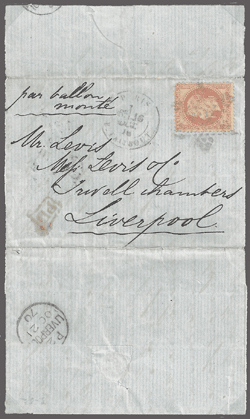 par ballon
monté
Mr. Lewis
Messrs Lewis & Co
Irwell Chambers
Liverpool
PD
LIVERPOOL
OC 21
70